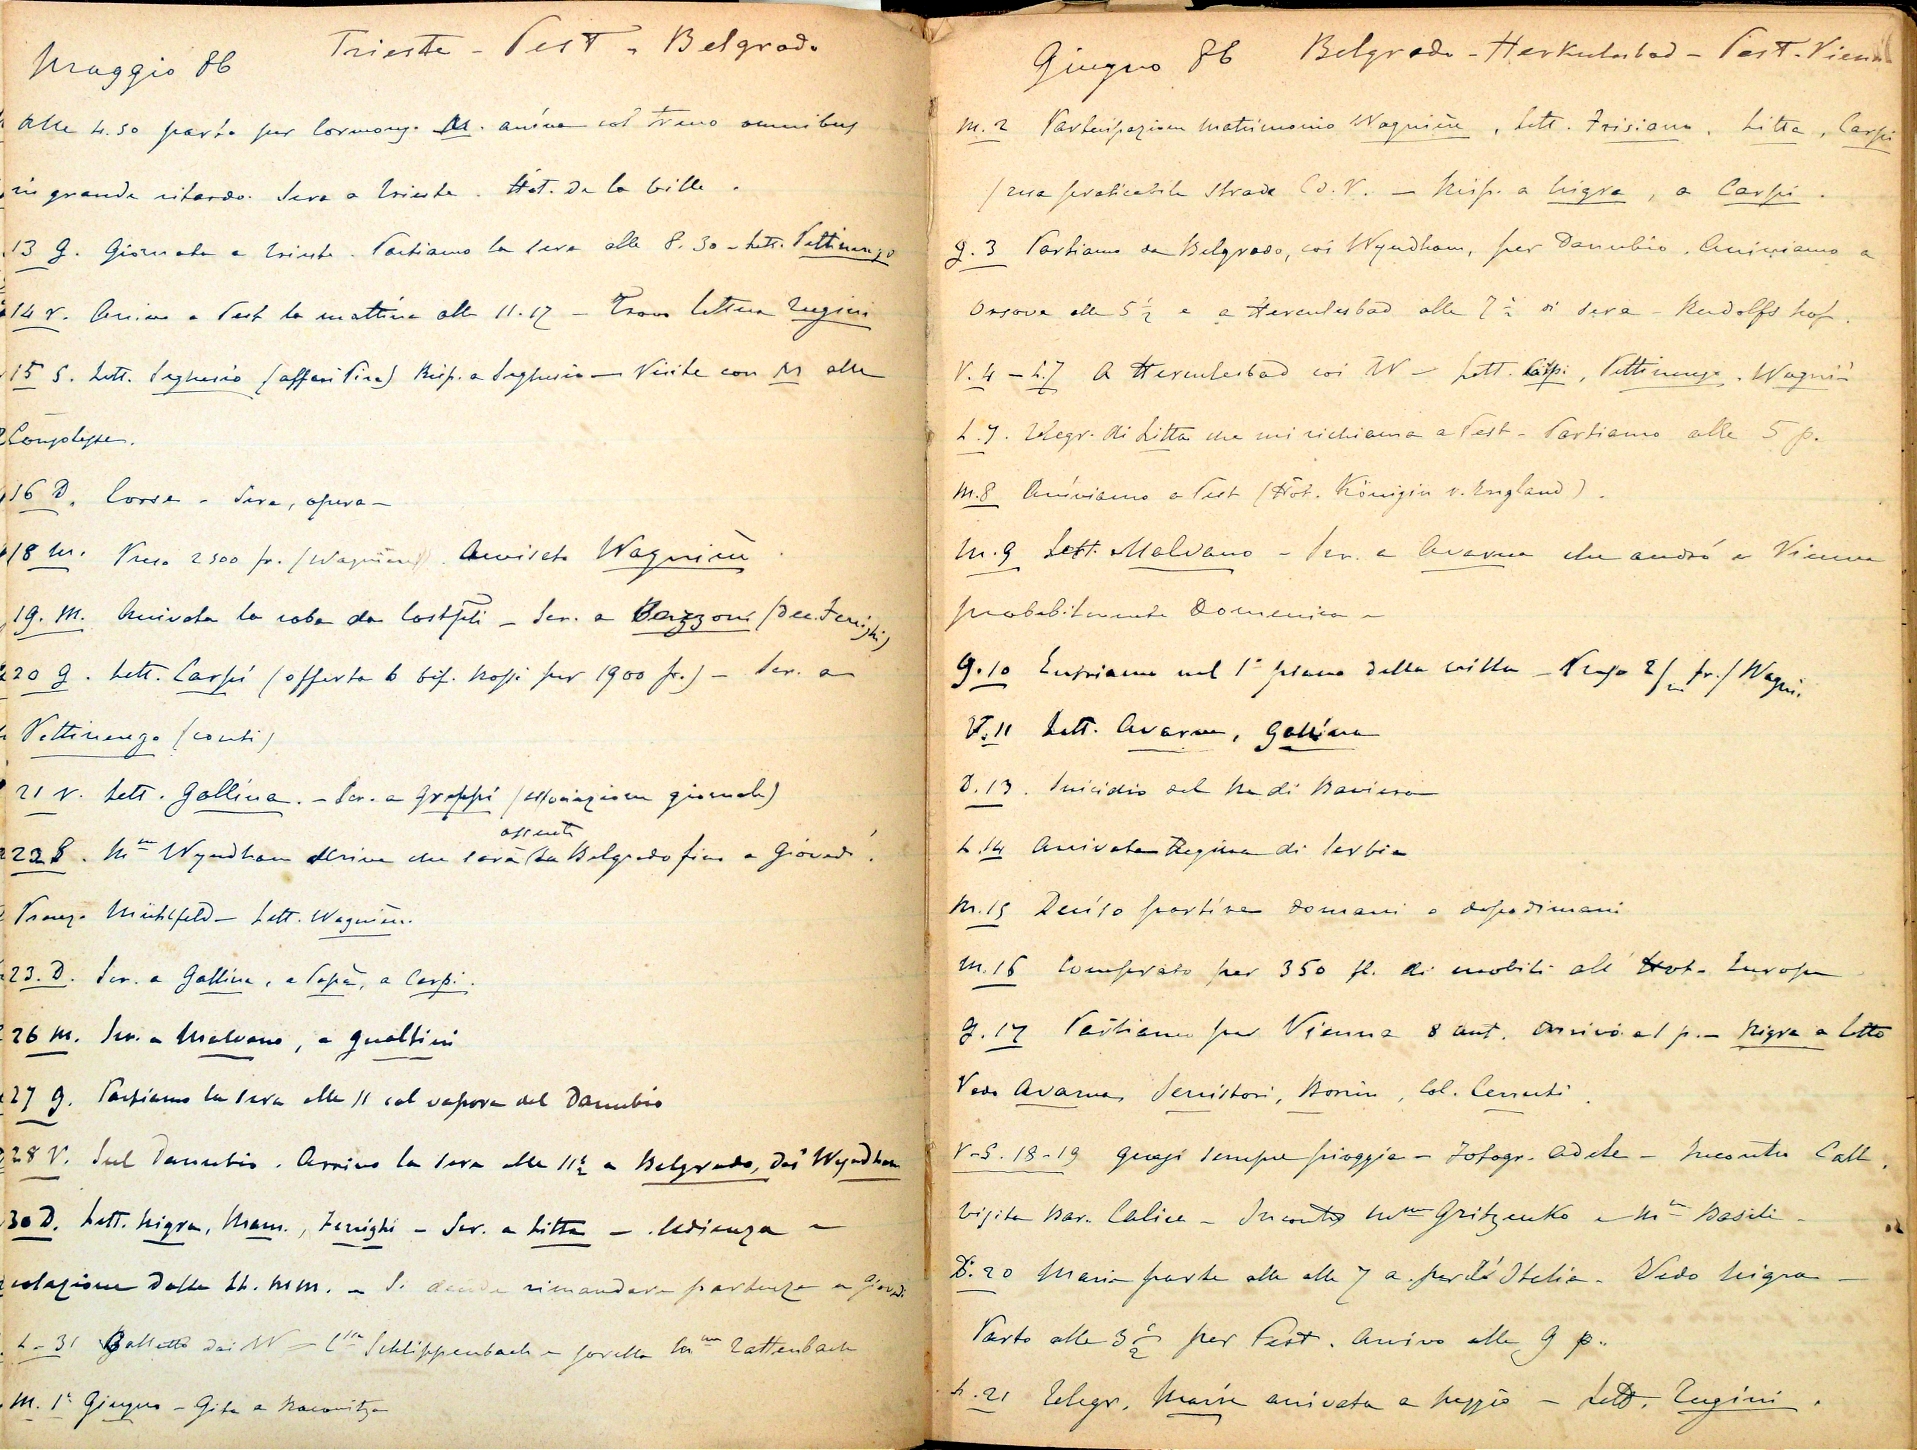 Maggio 86 Trieste - Pest - Belgrado
Alle 4.50 parto per Cormons. M. arriva col treno omnibus
in grande ritardo. Sera a Trieste. Hôt. De la Ville.
13 G. Giornata a Trieste. Partiamo la sera alle 8.30 - Lett. Pettinengo
14 V. Arrivo a Pest la mattina alle 11.17 - Trovo lettera Zugini
15 S. Lett. Seghesio (affari Pisa) Risp. a Seghesio - Visite con M alle
Colleghe.
16 D. Corse - Sera, opera -
18 M. Preso 2500 fr. (Wagnière). Avvisato Wagnière.
19. M. Arrivata la roba da Costpli - Scr. a (Dec. Ferrighi)
20 G. Lett. Carpi (offerta 6 per 1900 fr.) - Scr. a
Pettinengo (conti)
21 V. Lett. Gallina. - Scr. a Greppi (associazione giornale)
22 S. Mme Wyndham scrive che sarà assente da Belgrado fino a Giovedì.
Pranzo Mühlfeld - Lett. Wagnière.
23. D. Scr. a Gallina, a Papà, a Carpi.
26 M. Scr. a Malvano, a Gualtieri
27 G. Partiamo la sera alle 11 col vapore del Danubio
28 V. Sul Danubio. Arrivo la sera alle 11½ a Belgrado, dai Wyndham
30 D. Lett. Nigra, Mam., Ferrighi - Scr. a Litta - Udienza e
colazione dalle LL. MM. - Si decide rimandare partenza a Giovedì
L - 31 Balletto dai W - Css Schlippenbach e sorella Mme Rattenbach
M. 1° Giugno - Gita a Racovitza
Giugno 86 Belgrado - Herkulesbad - Pest - Vienna
M. 2 Partecipazione matrimonio Wagnière, Lett. Frisiani, Litta, Carpi
strade Co. V. - Risp. a Nigra, a Carpi.
G. 3 Partiamo da Belgrado, coi Wyndham, per Danubio. Arriviamo a
Orsova alle 5½ e a Herculesbad alle 7½ di sera - Rudolfshof.
V. 4 - L. 7 A Herculesbad coi W - Lett. Carpi, Pettinengo, Wagnière
L. 7. Telegr. di Litta che mi richiama a Pest - Partiamo alle 5 p.
M. 8 Arriviamo a Pest (Hôt. Königin v. England).
M. 9 Lett. Malvano - Scr. a Avarna che andrò a Vienna
probabilmente Domenica -
G. 10 Entriamo nel 1° piano della villa - Preso 2/m fr. / Wagni.
V. 11 Lett. Avarna, Gallina
D. 13. Suicidio del Re di Baviera
L. 14 Arrivata Regina di Serbia
M. 15 Deciso partire domani o dopodimani
M. 16 Comprato per 350 fl. di mobili all' Hot. Europa
G. 17 Partiamo per Vienna 8 ant. Arrivo a 1 p. - Nigra a letto
Vedo Avarna, Serristori, Bonin, Col. Cerruti.
V-S. 18-19 quasi sempre pioggia - Fotogr. Adele - Incontro Call.
Visita Bar. Calice - Incontro Mme Gritzenko e Mme Basili -
D. 20 Maria parte alle alle 7 a. per l'Italia. Vedo Nigra -
Parto alle 3½ per Pest. Arrivo alle 9 p.
L. 21 Telegr. Maria arrivata a Reggio - Lett. Zugini.